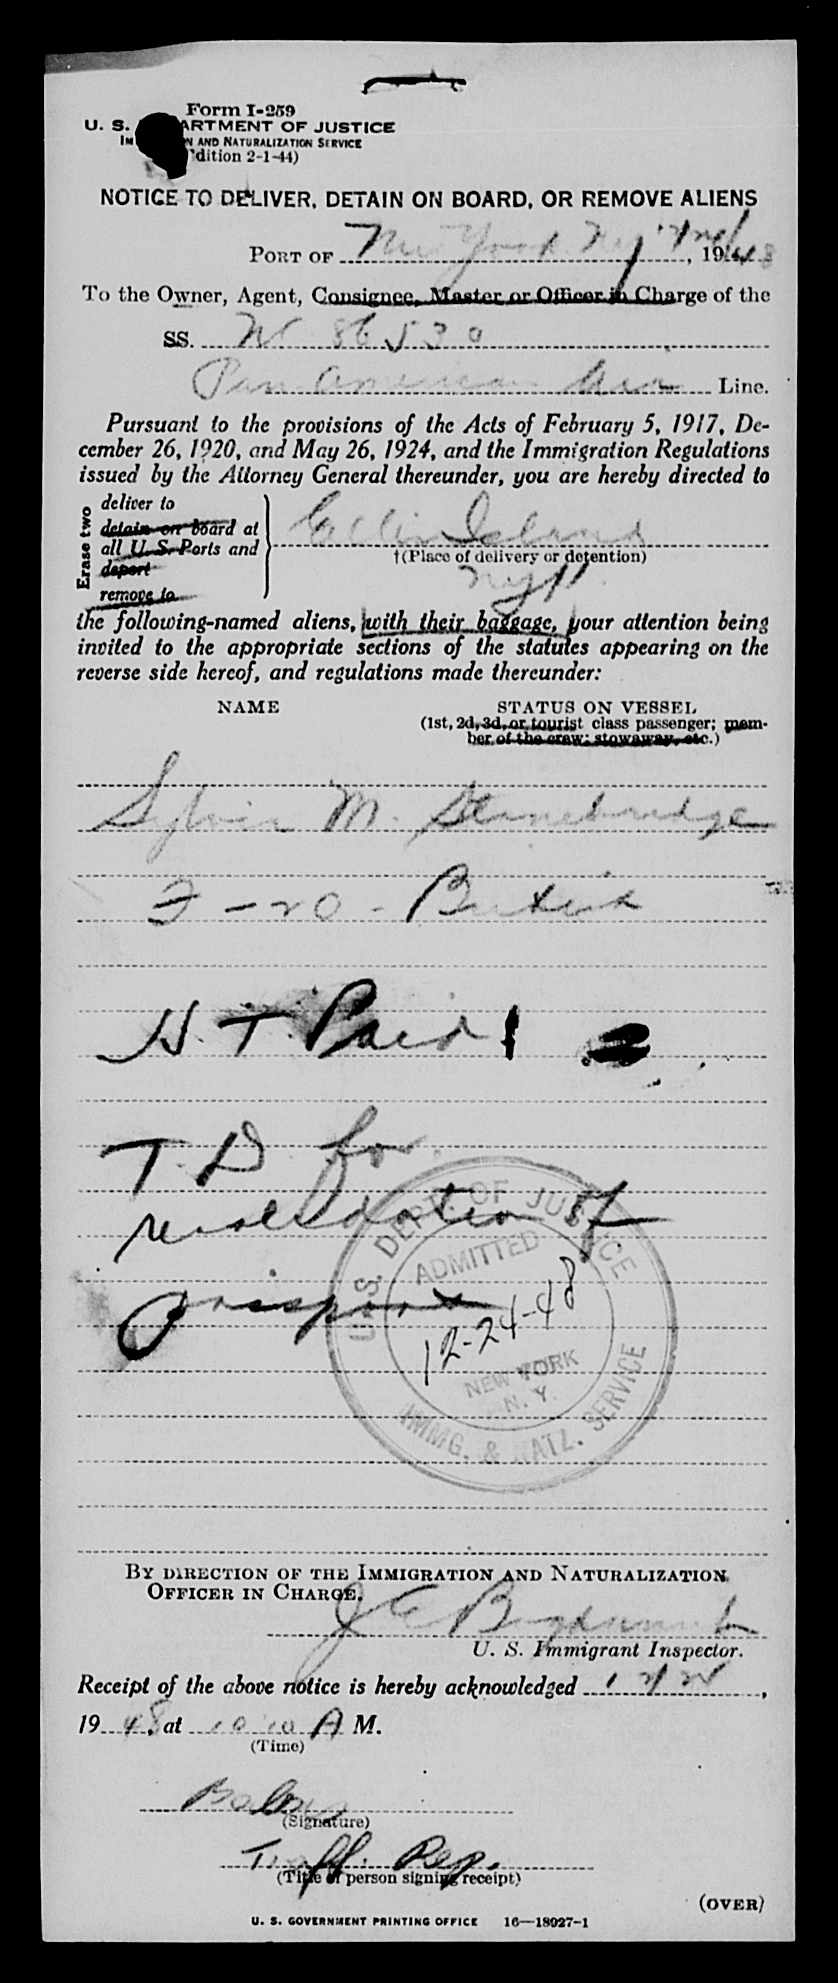 Form I-259
U. S. ARTMENT OF JUSTICE
N AND NATURALIZATION SERVICE
dition 2-1-44)
NOTICE TO DELIVER, DETAIN ON BOARD, OR REMOVE ALIENS
PORT OF New York, 1948
To the Owner, Agent, Consignee, Master or Officer in Charge of the
SS. NC 86530
Pan American Line.
Pursuant to the provisions of the Acts of February 5, 1917, De-
cember 26, 1920, and May 26, 1924, and the Immigration Regulations
issued by the Attorney General thereunder, you are hereby directed to
Erase two
deliver to
detain on board at
all U. S. Ports and
deport
remove to
Ellis Island
†(Place of delivery or detention)
NY
the following-named aliens, with their baggage, your attention being
invited to the appropriate sections of the statutes appearing on the
reverse side hereof, and regulations made thereunder:
NAME STATUS ON VESSEL
(1st, 2d, 3d, or tourist class passenger; mem-
ber of the crew; stowaway, etc.)
Sylvia M. Stonebridge
F - 20 - British
H. T. Paid
T. D for
revalidation of
passport
U.S. DEPT. OF JUSTICE
ADMITTED
12-24-48
NEW YORK
N. Y.
IMMG. & NATZ. SERVICE
BY DIRECTION OF THE IMMIGRATION AND NATURALIZATION
OFFICER IN CHARGE.
J E
U. S. Immigrant Inspector.
Receipt of the above notice is hereby acknowledged ,
1948, at 10 10 A M.
(Time)
(Signature)
Traff. Rep.
(Title of person signing receipt)
(OVER)
U. S. GOVERNMENT PRINTING OFFICE 16—18027-1